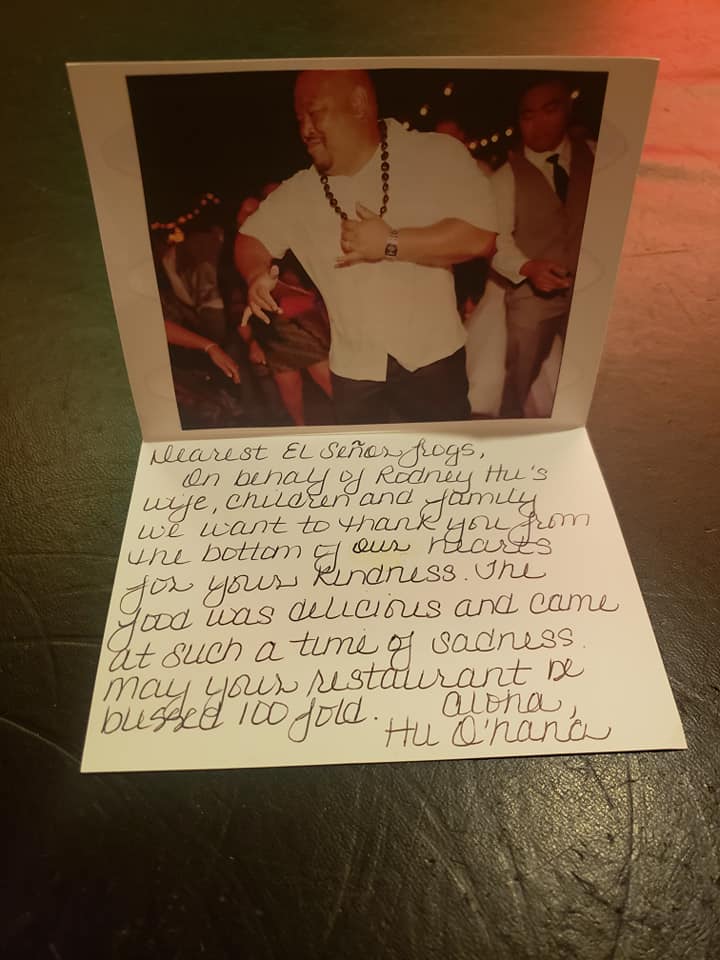 Dearest El Señor frogs,
On behalf of Rodney Hu's
wife, children and family
we want to thank you from
the bottom of our hearts
for your kindness. The
food was delicious and came
at such a time of sadness.
may your restaurant be
blessed 100 fold. aloha,
Hu O'hana